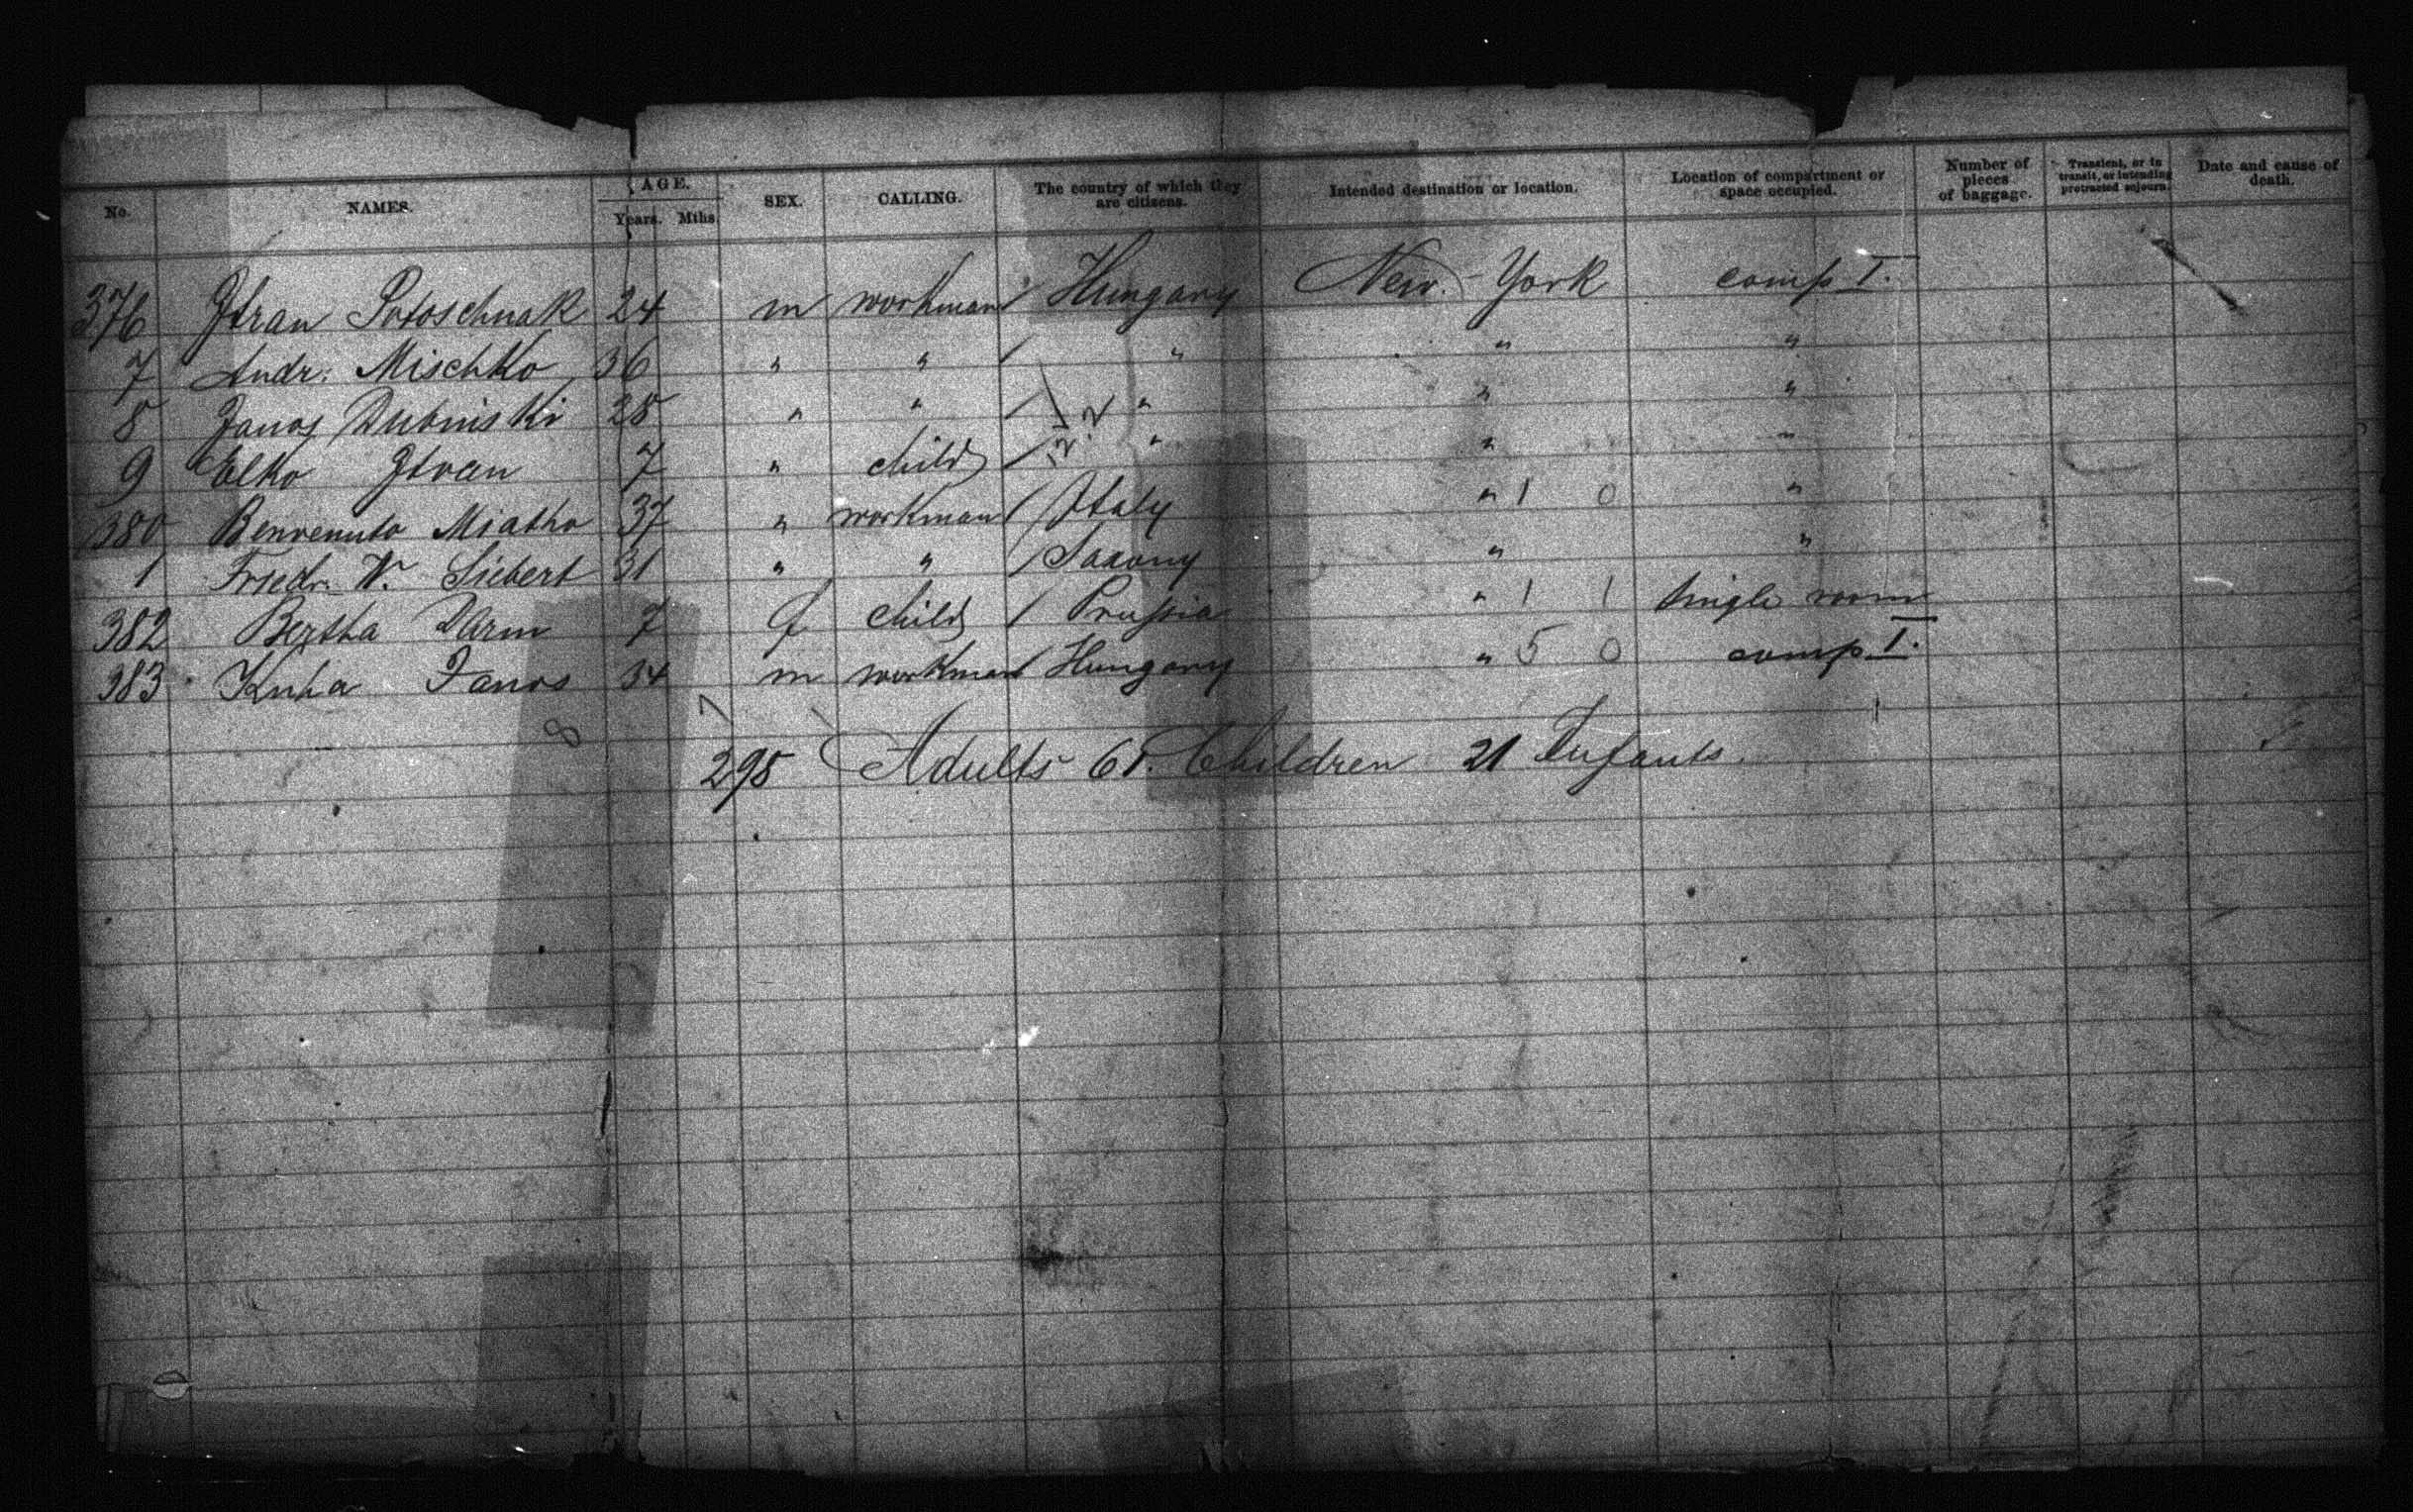 No. NAMES. AGE. Years. Mths. SEX. CALLING. The country of which they are citizens. Intended destination or location. Location of compartment or space occupied. Number of pieces of baggage. Transient, or in transit, or intending protracted sojourn. Date and cause of death.
376 Istvan Potoschnak 24 m workman / Hungary New-York comp I.
7 Andr. Mischko 36 " " / " " "
8 Janos Dubinski 28 " " / " " "
9 Elko Istvan 7 " child / " " "
380 Benvenuto Miatho 37 " workman / Italy " 1 0 "
1 Friedr. W. Siebert 31 " " / Saxony " "
382 Bertha Darm 7 f child / Prussia " 1 1 single room
383 Kuha Janos 34 m workman / Hungary " 5 0 comp I.
8 7 1
295 Adults 61. Children 21 Infants.